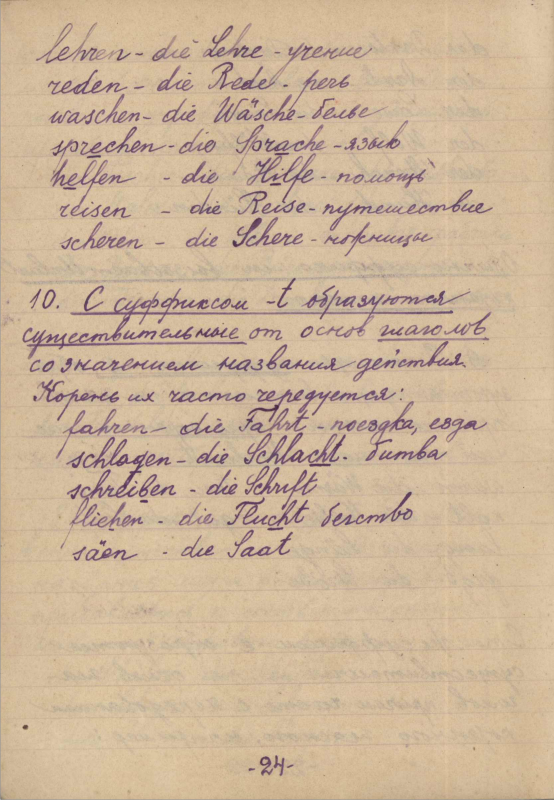 lehren - die Lehre - учение
reden - die Rede - речь
waschen - die Wäsche - белье
sprechen - die Sprache - язык
helfen - die Hilfe - помощь
reisen - die Reise - путешествие
scheren - die Schere - ножницы
10. С суффиксом -t образуются
существительные от основ глаголов
со значением названия действия.
Корень их часто чередуется:
fahren - die Fahrt - поездка, езда
schlagen - die Schlacht - битва
schreiben - die Schrift
fliehen - die Flucht бегство
säen - die Saat
- 24 -